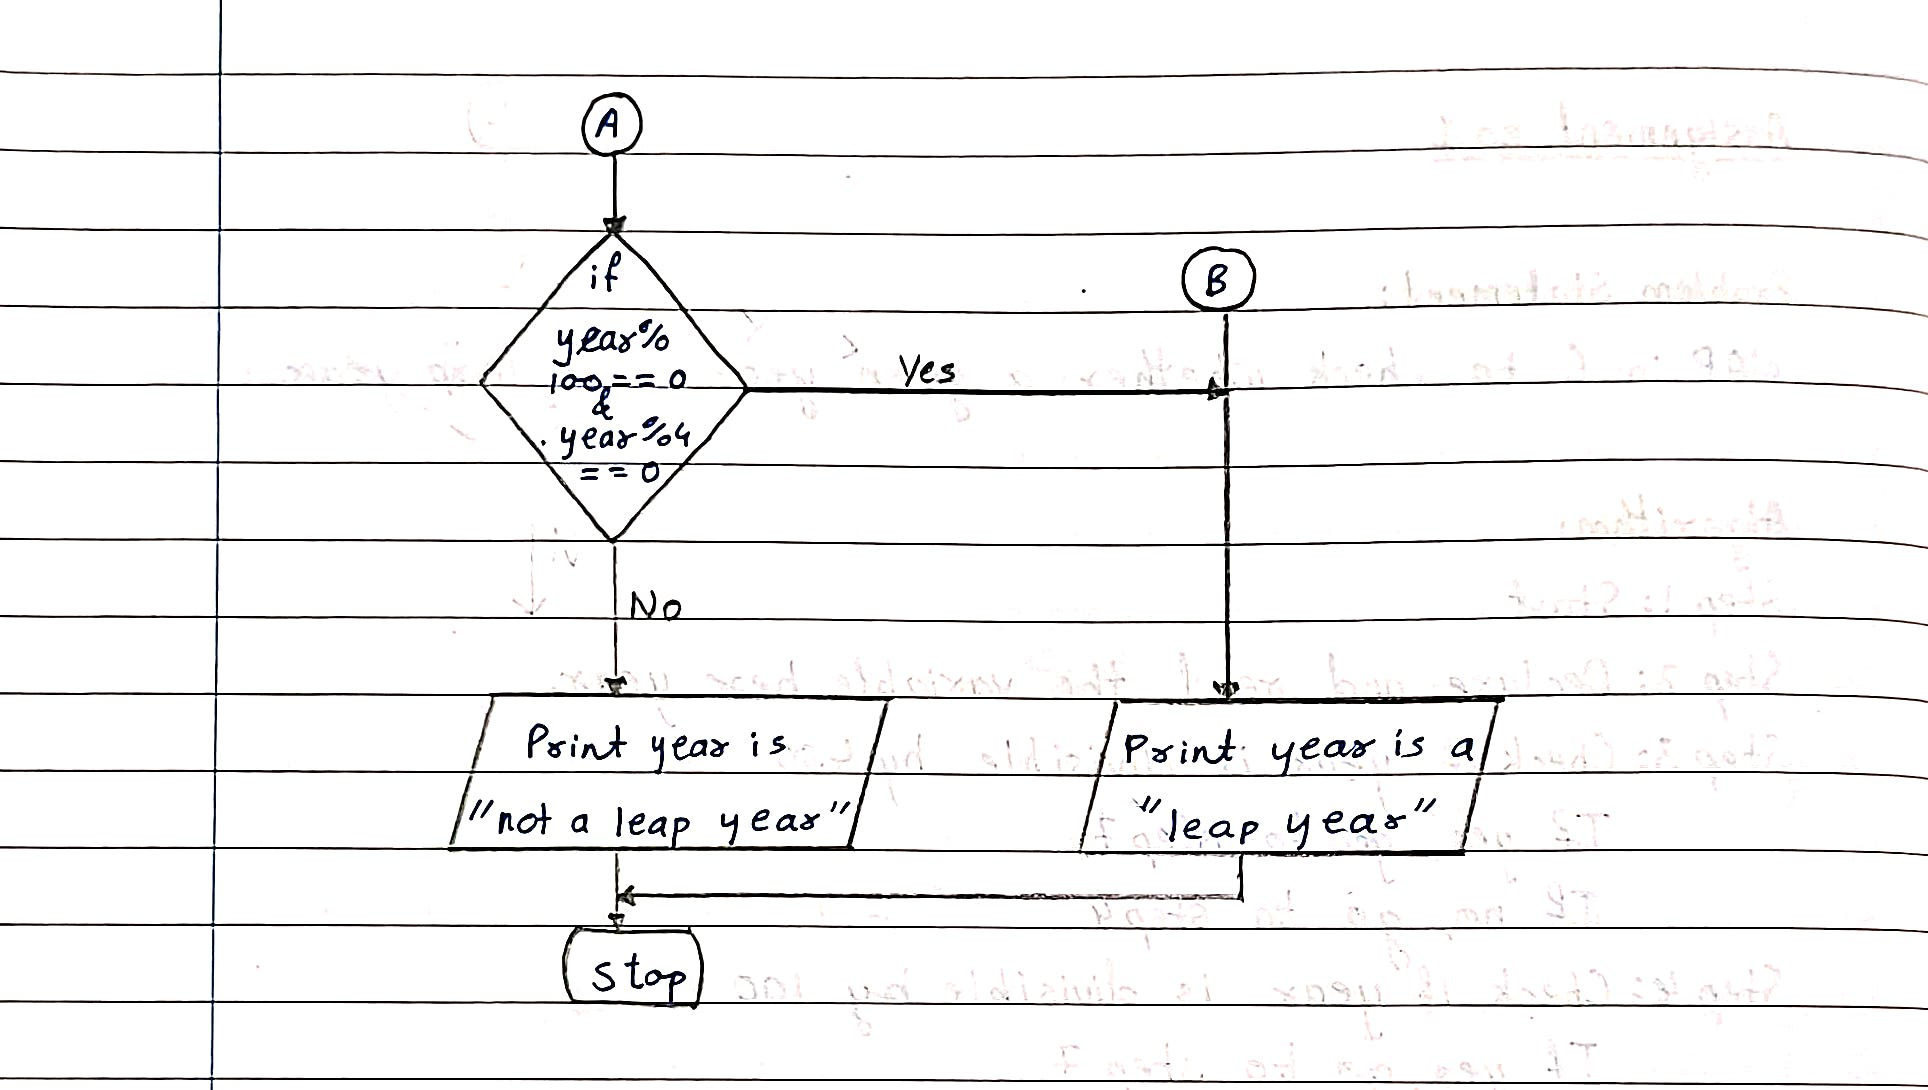 A
if
year%
100 == 0
&
year%4
== 0
Yes
B
No
Print year is
"not a leap year"
Print year is a
"leap year"
stop